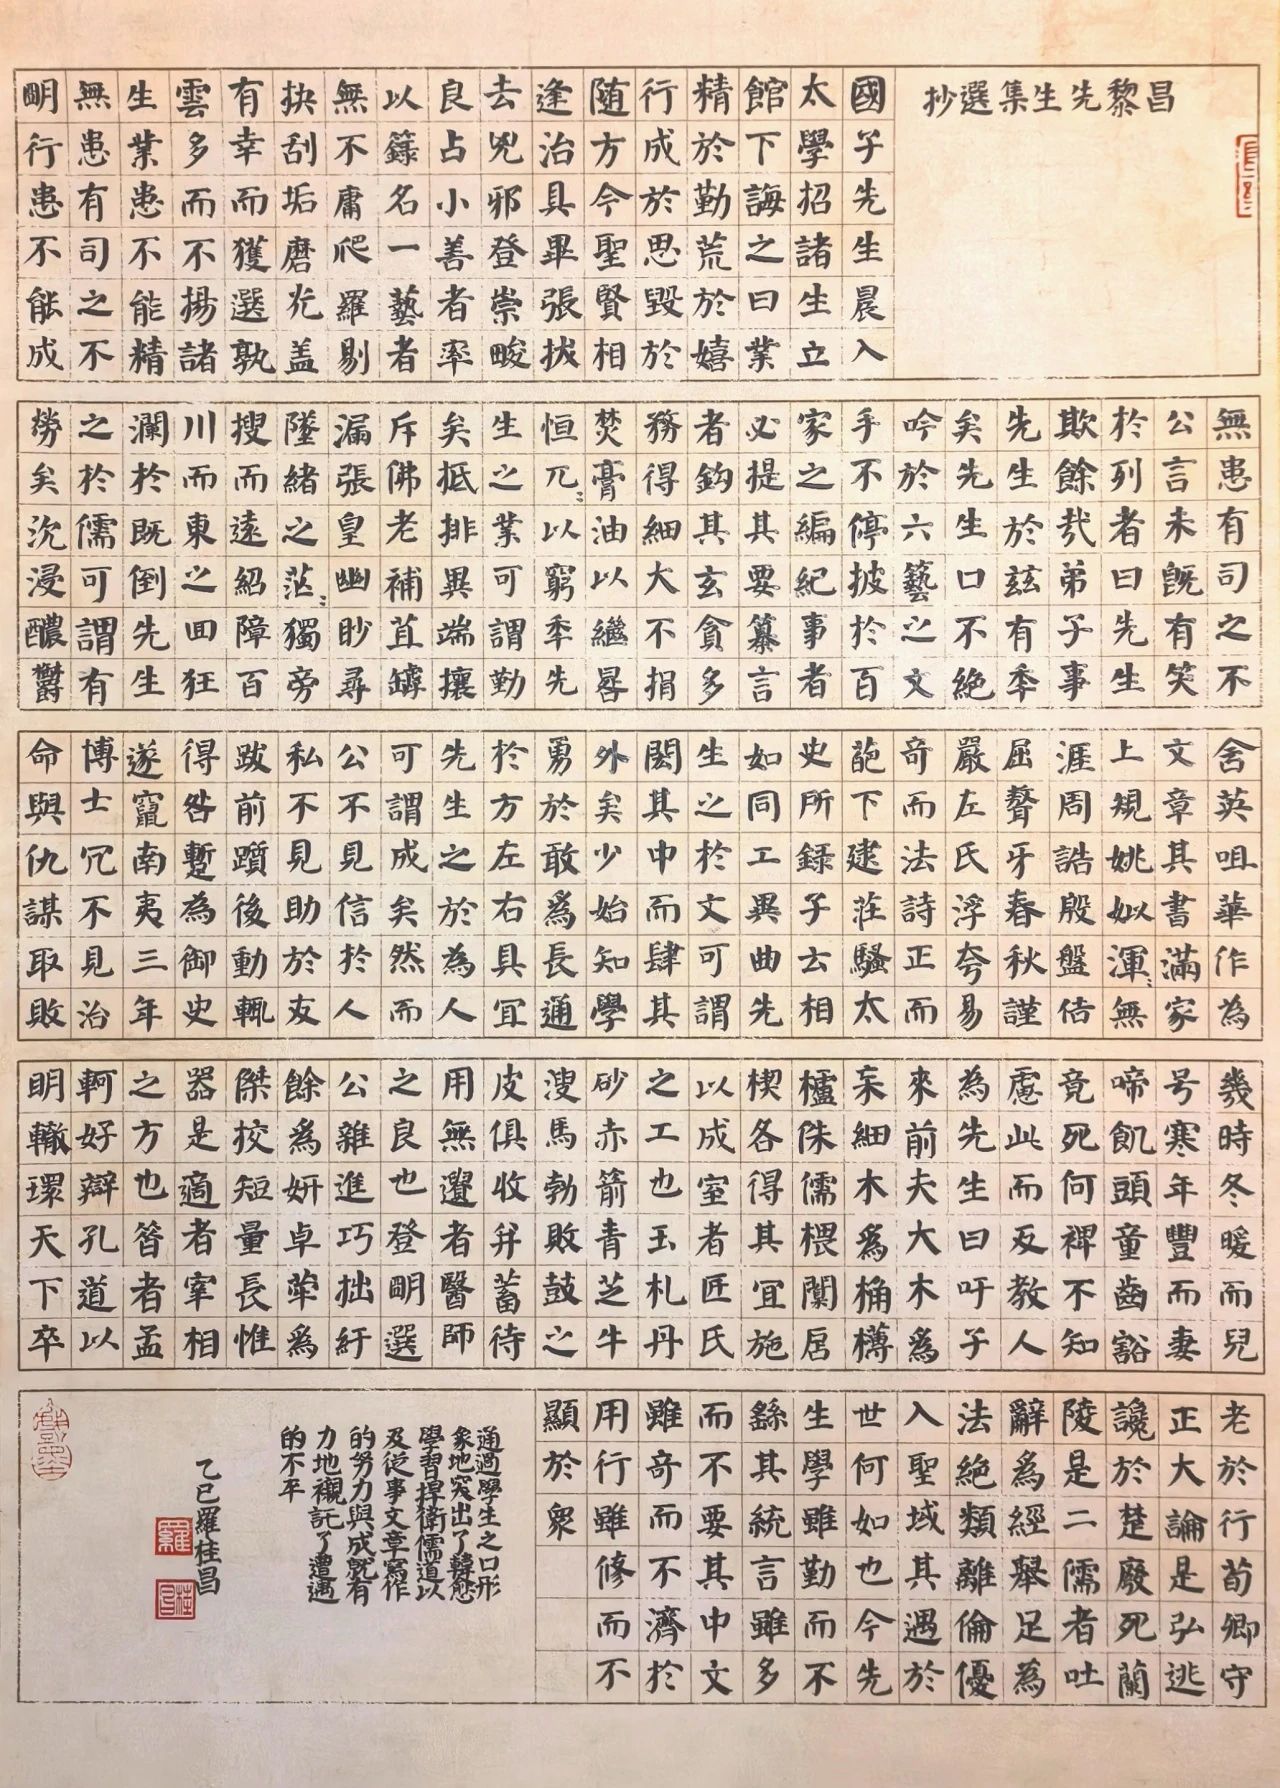 昌黎先生集選抄
國子先生晨入
太學招諸生立
館下誨之曰業
精於勤荒於嬉
行成於思毀於
隨方今聖賢相
逢治具畢張拔
去兇邪登崇畯
良占小善者率
以籙名一藝者
無不庸爬羅剔
抉刮垢磨光盖
有幸而獲選孰
雲多而不揚諸
生業患不能精
無患有司之不
明行患不能成
無患有司之不
公言未旣有笑
於列者曰先生
欺餘哉弟子事
先生於茲有秊
矣先生口不絕
吟於六藝之文
手不停披於百
家之編紀事者
必提其要纂言
者鈎其玄貪多
務得細大不捐
焚膏油以繼晷
恒兀〻以窮秊先
生之業可謂勤
矣抵排異端攘
斥佛老補苴罅
漏張皇幽眇尋
墜緒之茫〻獨旁
搜而遠紹障百
川而東之回狂
瀾於既倒先生
之於儒可謂有
勞矣沈浸醲鬱
含英咀華作為
文章其書滿家
上規姚姒渾〻無
涯周誥殷盤佶
屈聱牙春秋謹
嚴左氏浮夸易
奇而法詩正而
葩下逮莊騷太
史所錄子云相
如同工異曲先
生之於文可謂
閎其中而肆其
外矣少始知學
勇於敢爲長通
於方左右具宜
先生之於為人
可謂成矣然而
公不見信於人
私不見助於友
跋前躓後動輒
得咎蹔為御史
遂竄南夷三年
博士冗不見治
命與仇謀取敗
幾時冬暖而兒
号寒年豐而妻
啼飢頭童齒豁
竟死何裨不知
慮此而反教人
為先生曰吁子
來前夫大木爲
杗細木爲桷欂
櫨侏儒椳闑扂
楔各得其宜施
以成室者匠氏
之工也玉札丹
砂赤箭青芝牛
溲馬勃敗鼓之
皮俱收并蓄待
用無遺者醫師
之良也登明選
公雜進巧拙紆
餘爲妍卓犖爲
傑挍短量長惟
器是適者宰相
之方也昝者孟
軻好辯孔道以
明轍環天下卒
老於行荀卿守
正大論是弘逃
讒於楚廢死蘭
陵是二儒者吐
辭爲經舉足為
法絕類離倫優
入聖域其遇於
世何如也今先
生學雖勤而不
繇其統言雖多
而不要其中文
雖奇而不濟於
用行雖修而不
顯於眾
通過學生之口形
象地突出了韓愈
學習捍衛儒道以
及從事文章寫作
的努力與成就有
力地襯託了遭遇
的不平
乙巳羅桂昌
羅
桂昌